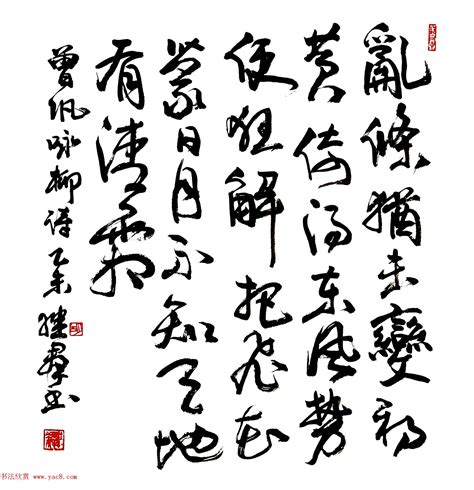 亂條猶未變初
黄倚得东风勢
便狂解把飛花
蒙日月不知天地
有清霜
曾巩咏柳诗乙未继群书
书法欣赏 www.yac8.com